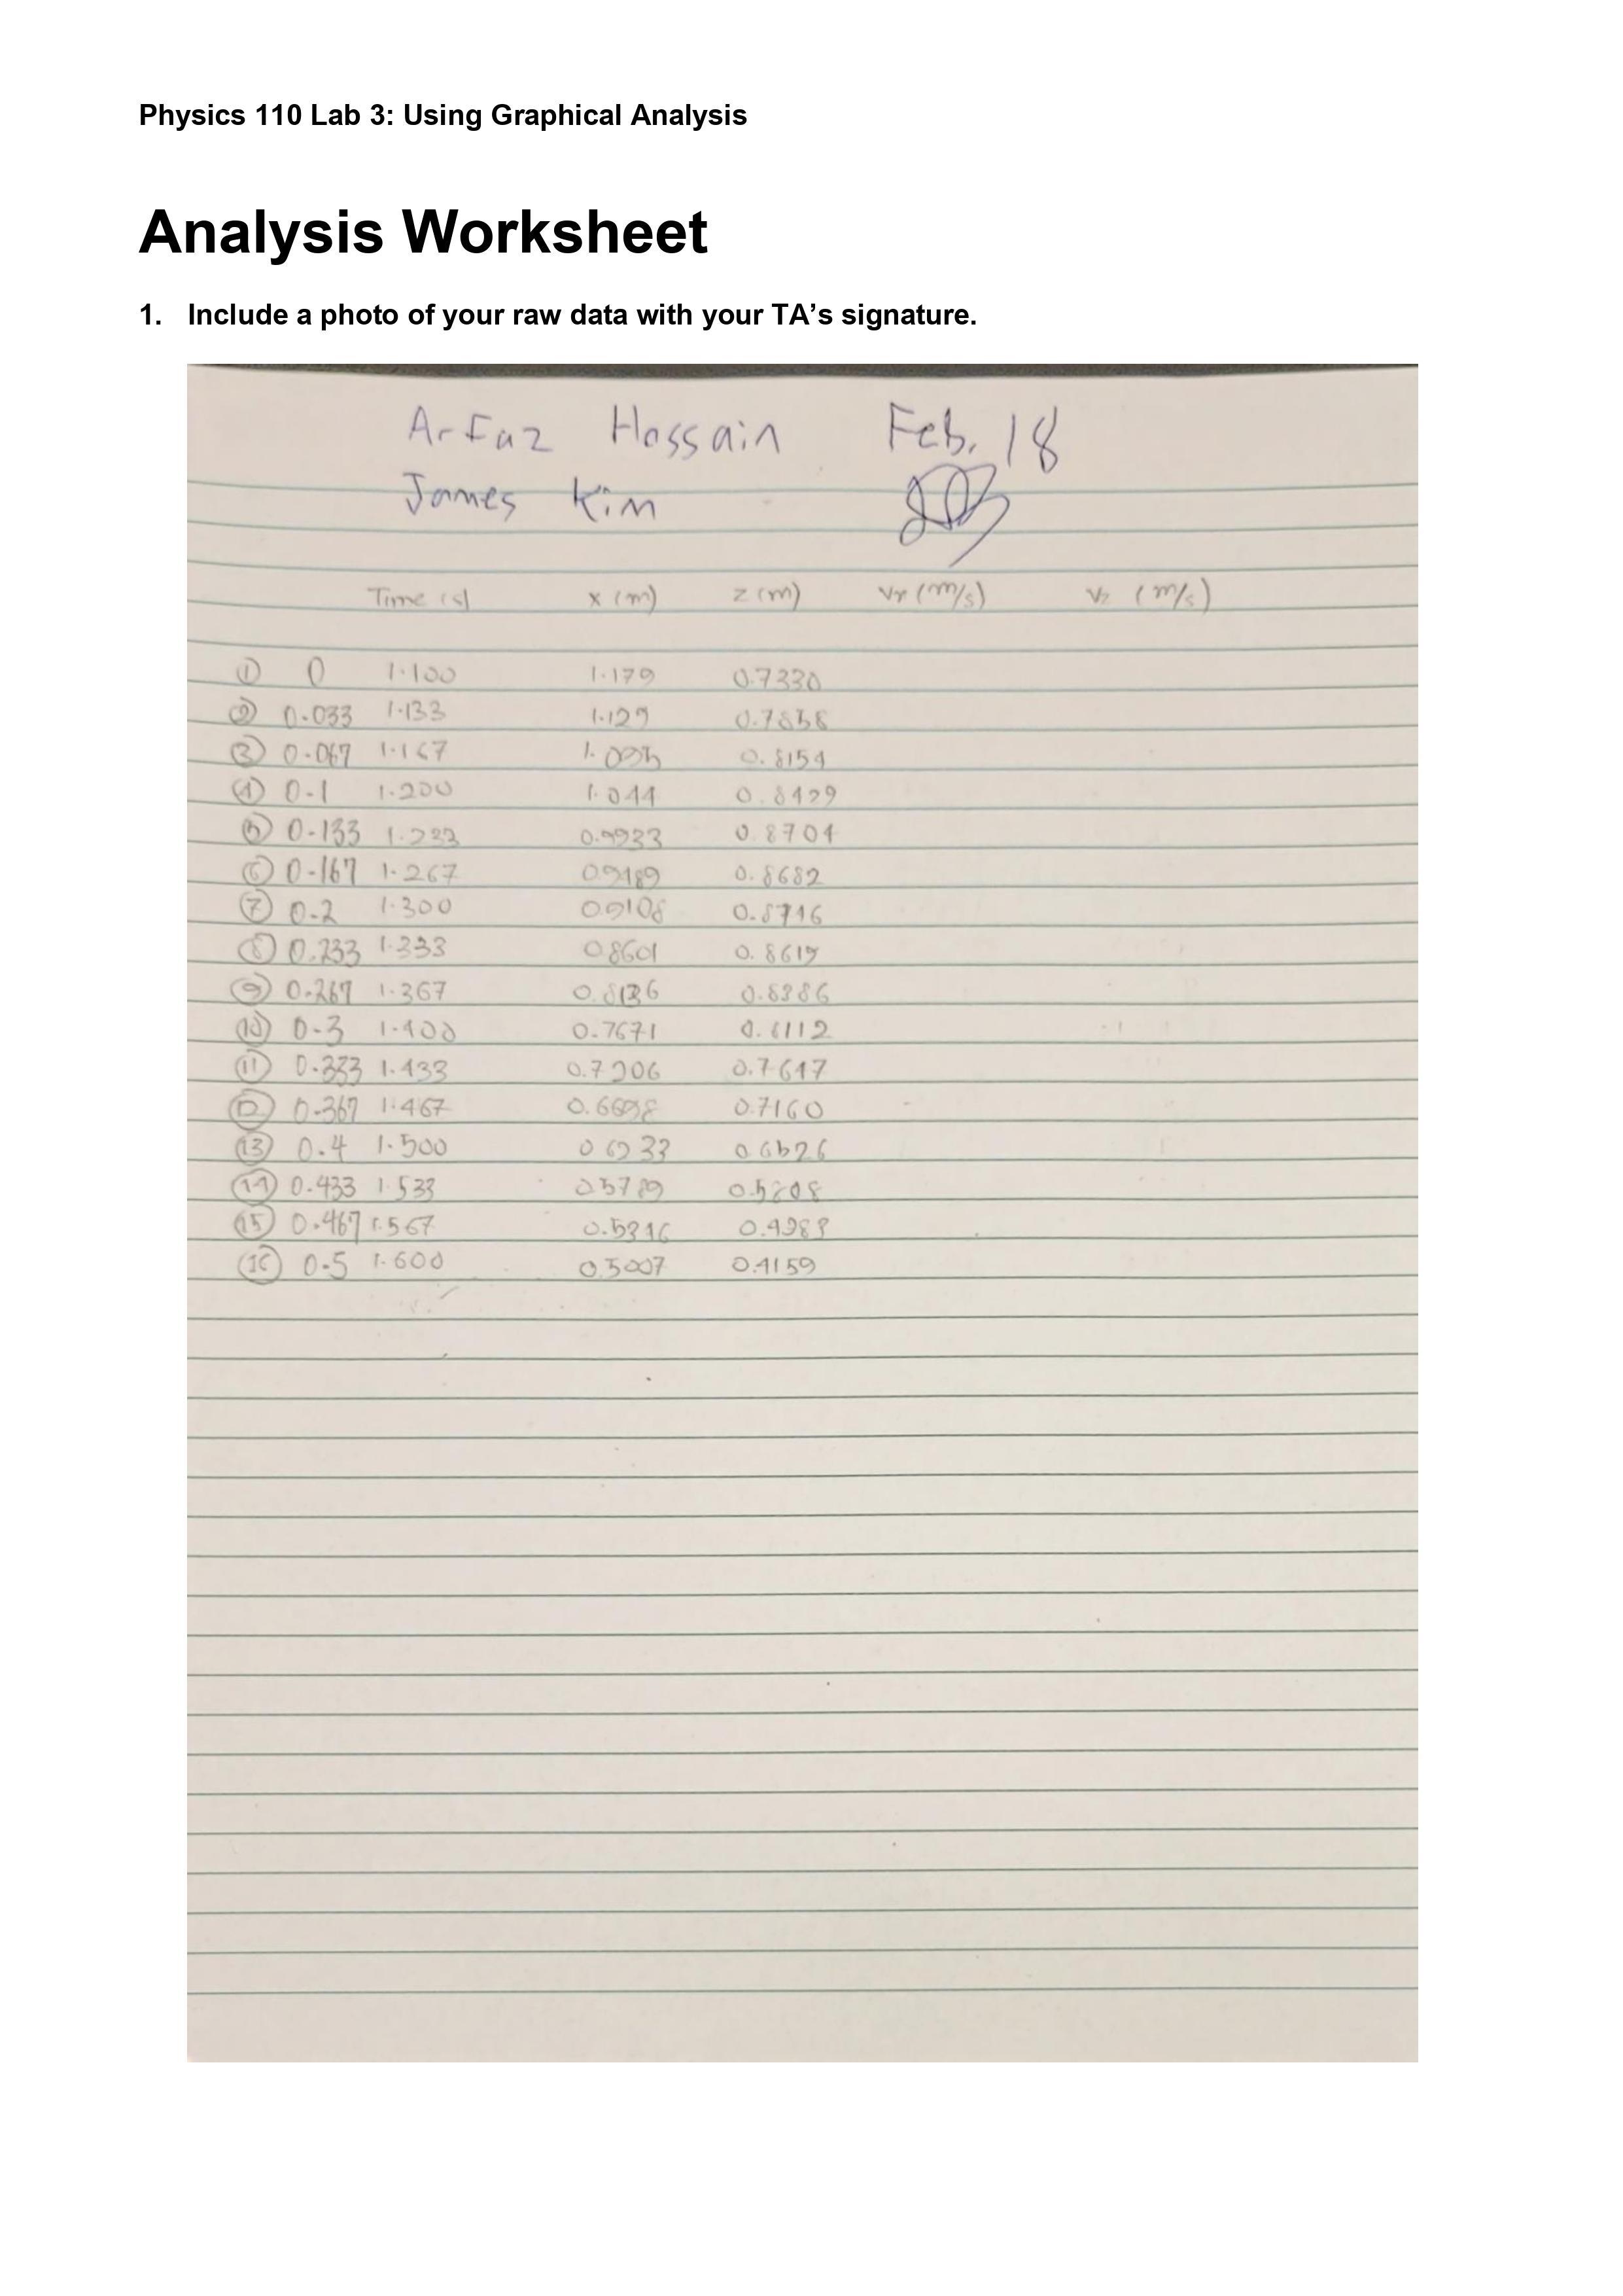 Physics 110 Lab 3: Using Graphical Analysis
Analysis Worksheet
1. Include a photo of your raw data with your TA’s signature.
Arfaz Hossain Feb. 18
James Kim
Time (s) x (m) z (m) Vx (m/s) Vz (m/s)
① 0 1.100 1.179 0.7330
② 0.033 1.133 1.129
③ 0.067 1.167 1.095 0.8154
④ 0.1 1.200 1.044 0.8429
⑤ 0.133 1.233 0.9933 0.8704
⑥ 0.167 1.267 0.8682
⑦ 0.2 1.300 0.9108 0.8746
⑧ 0.233 1.333 0.8601 0.8619
⑨ 0.267 1.367 0.8136 0.8386
⑩ 0.3 1.400 0.7671 0.8112
⑪ 0.333 1.433 0.7206 0.7647
⑫ 0.367 1.467 0.6698 0.7160
⑬ 0.4 1.500 0.6233 0.6526
⑭ 0.433 1.533 0.5789 0.5808
⑮ 0.467 1.567 0.5346 0.4983
⑯ 0.5 1.600 0.5007 0.4159